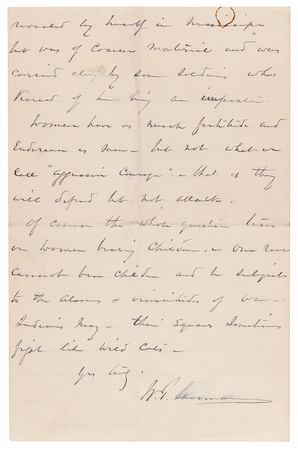 by myself in Mississippi
but was of Common Material and was
carried along by some soldiers who
of her being an
Women have as much fortitude and
Endurance as Men - but not what we
Call "aggressive Courage" - that is they
will defend but not attack.
Of Course the whole question turns
on Women bearing Children. - Our race
cannot bear Children and be subject
to the alarms & vicissitudes of war -
Indians may - their Squaws Sometimes
fight like Wild Cats -
Yrs truly,
W. T. Sherman